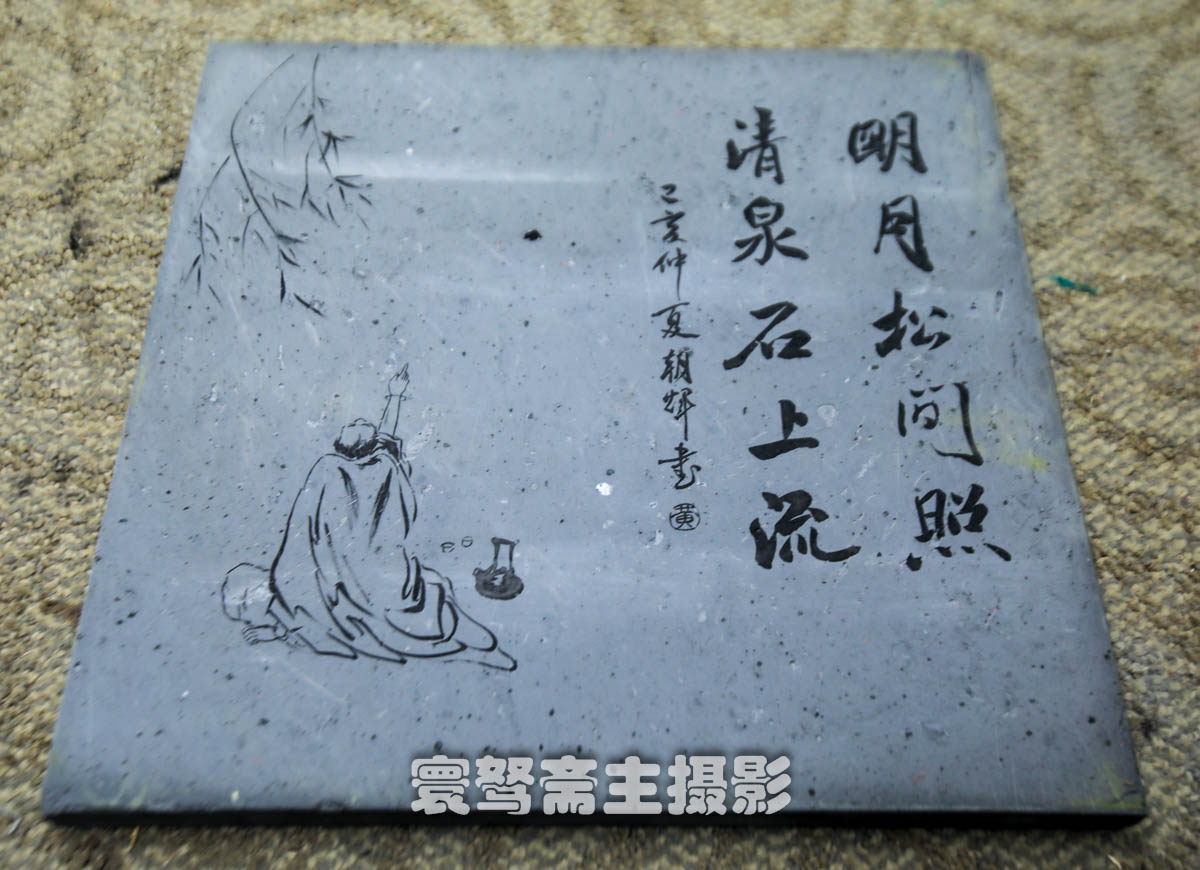 明月松间照
清泉石上流
己亥仲夏朝辉书
黄
寰驽斋主摄影